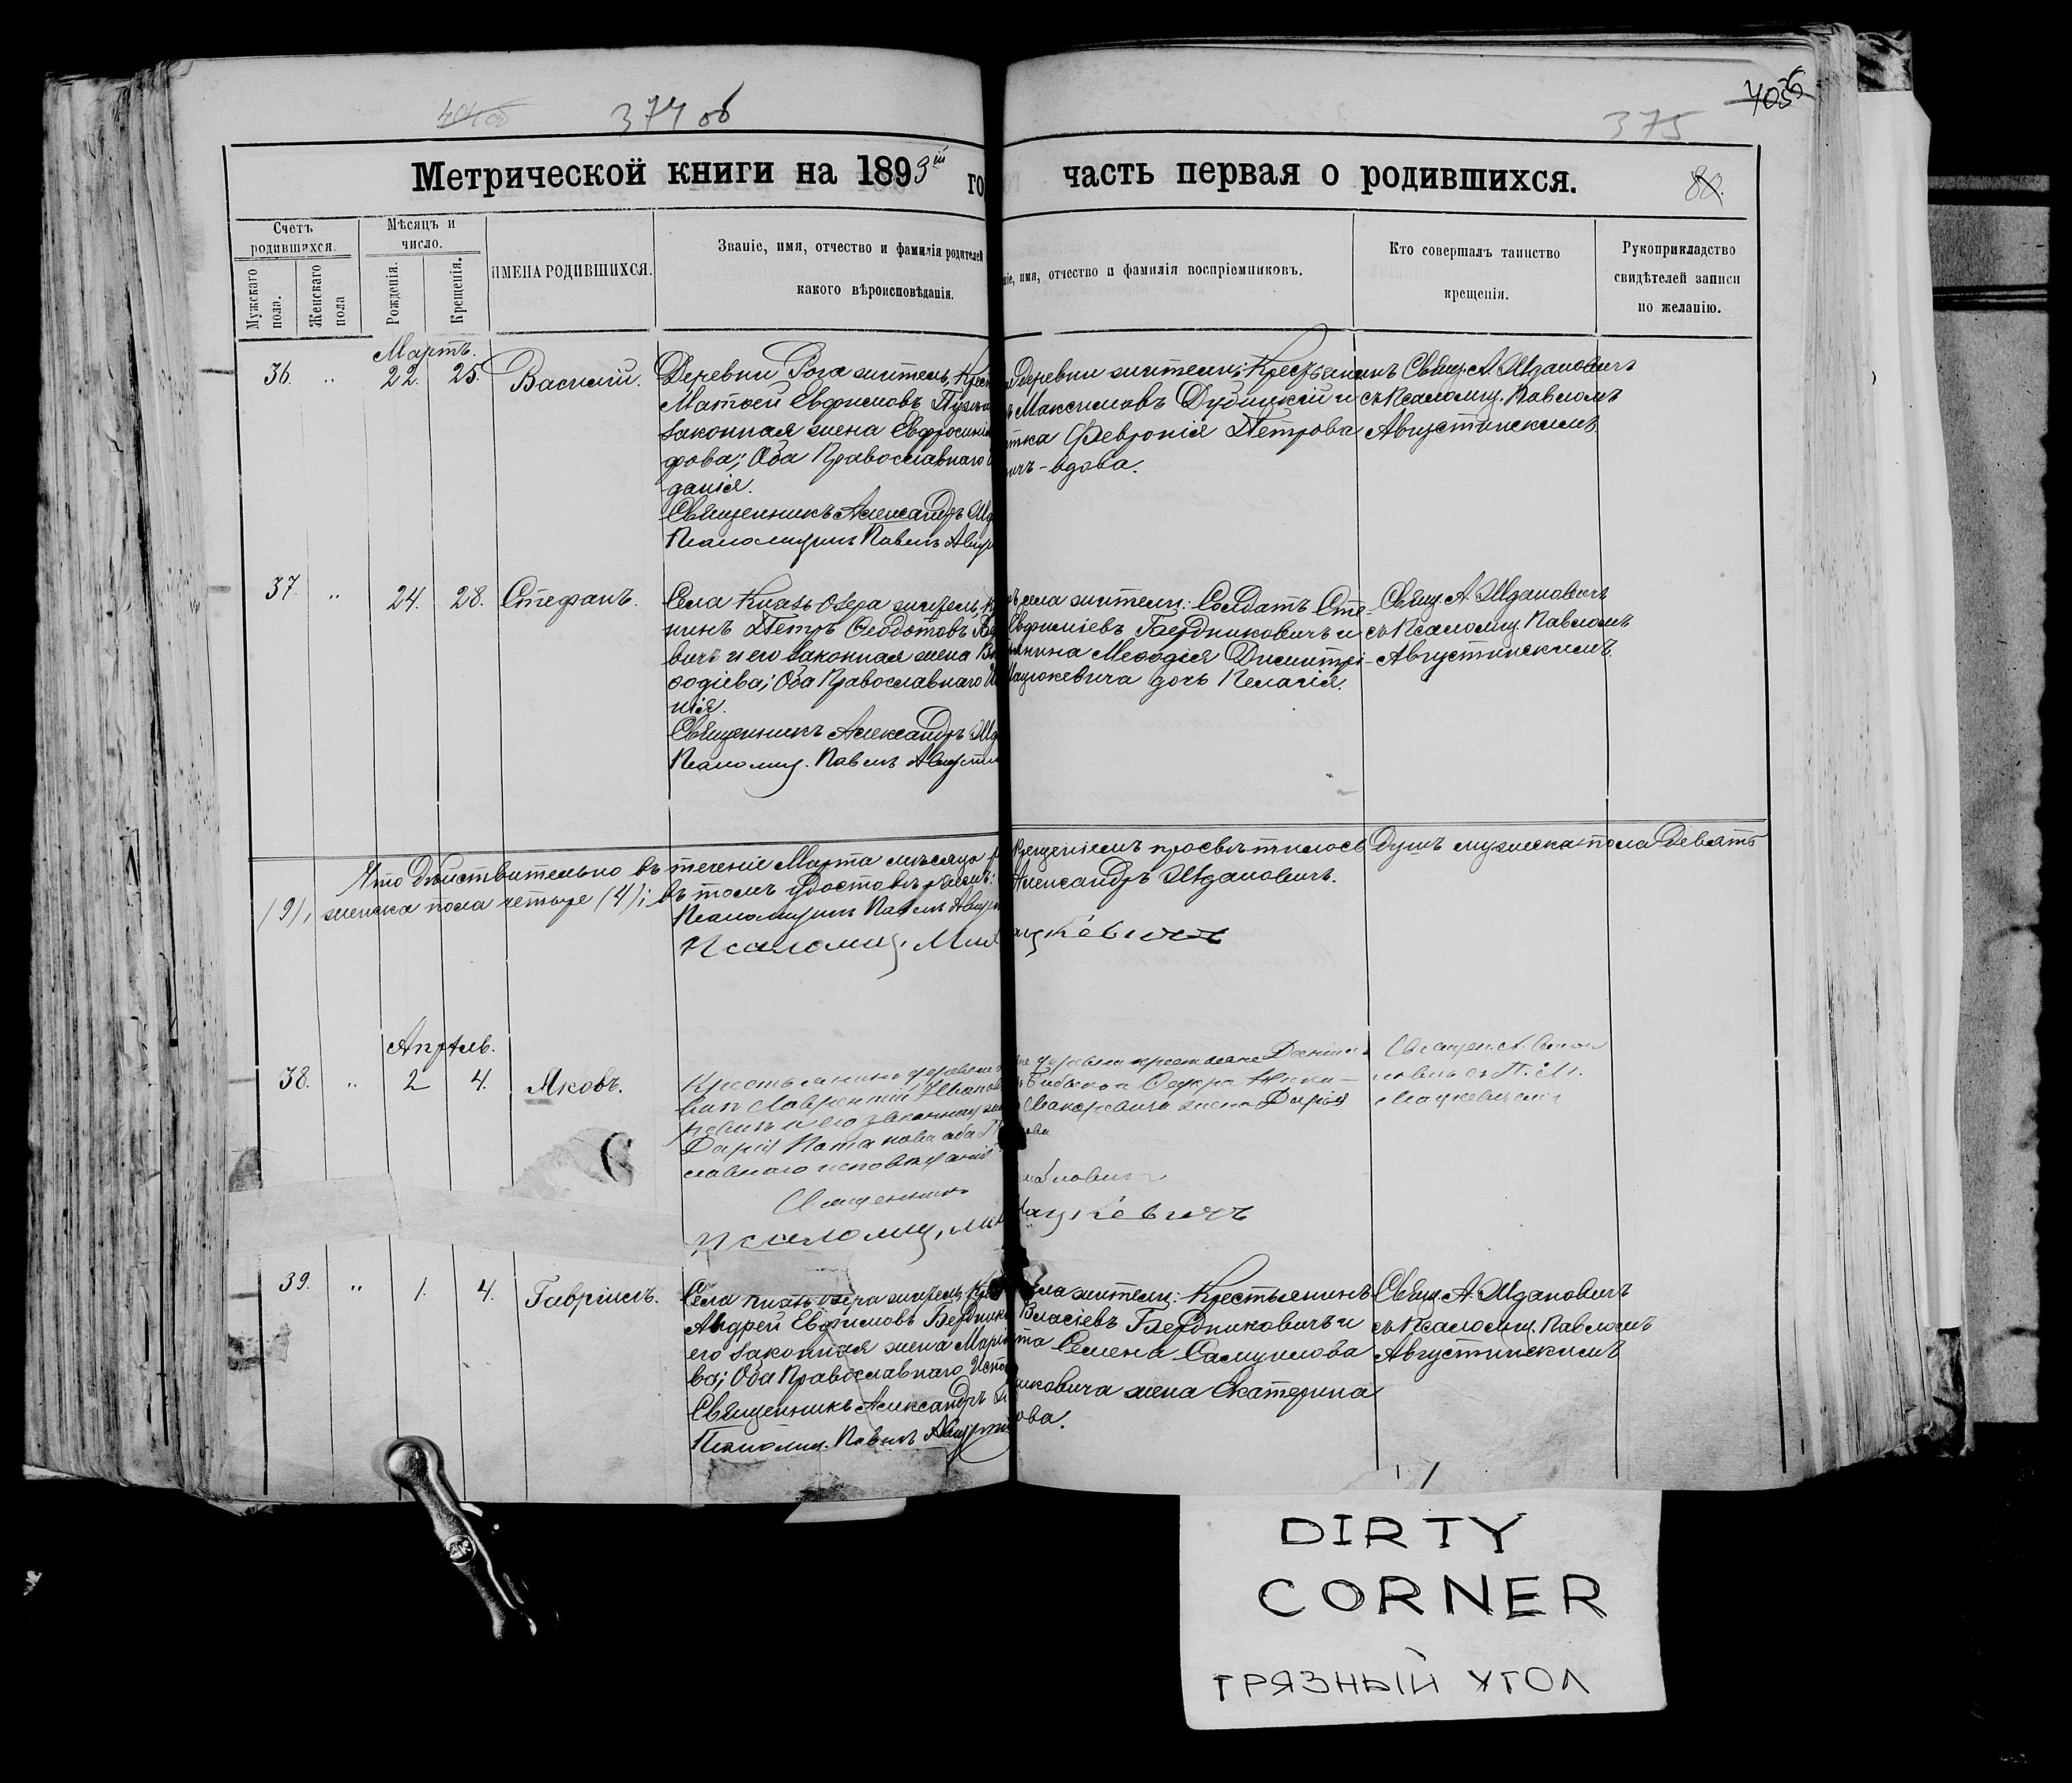 374 об
375
Метрической книги на 1893 й го
часть первая о родившихся.
80.
Счетъ родившихся.
Мужскаго пола.
Женскаго пола
Мѣсяцъ и число.
Рожденія.
Крещенія.
ИМЕНА РОДИВШИХСЯ.
Званіе, имя, отчество и фамилія родителей
какого вѣроисповѣданія.
іе, имя, отчество и фамилія воспріемниковъ.
Кто совершалъ таинство
крещенія.
Рукоприкладство
свидѣтелей записи
по желанію.
Мартъ.
36. „ 22. 25. Василій.
Деревни Рога житель, Крест
Матѳей Евфимовъ
законная жена Евфросинія
фова; Оба Православнаго
данія.
Священникъ Александръ Жд
Псаломщикъ Павелъ Авгу
деревни жители: Крестьянинъ
Максимовъ Дубицкій и
тка Февронія Петрова
ичъ - вдова.
Свящ. А. Ждановичъ
съ Псаломщ. Павломъ
Августинскимъ
37. „ 24. 28. Стефанъ.
Села Князь Озера житель, К
нинъ Петръ Ѳеодотовъ
вичъ и его законная жена
ѳодіева; Оба Православнаго И
нія.
Священникъ Александръ Жд
Псаломщ. Павелъ Августи
села жители: Солдатъ Сте-
Евфиміевъ Бердниковичъ и
янина Меѳодія Димитрі-
Мацюкевича дочь Пелагія.
Свящ. А. Ждановичъ
съ Псаломщ. Павломъ
Августинскимъ.
Что дѣйствительно въ теченіе Марта мѣсяца
Крещеніемъ просвѣтилось Душъ мужеска пола Девять
(9), женска пола четыре (4); въ томъ удостовѣряемъ:
Александръ Ждановичъ.
Псаломщикъ Павелъ Авгус
Псаломщ. Ми
цкевичъ
Апрѣль.
38. „ 2 4. Яковъ.
Крестьянинъ деревни
Лаврентій Иванов
и его законная же
Дарія Потапова оба П
славнаго исповѣданія
Священникъ
Псаломщ. Ми
деревни крестьяне Даніилъ
Макаревича жена Дарія
ова
цкевичъ
Священ. А.
съ П. М.
Мацкевичемъ
39. „ 1. 4. Гавріилъ.
Села Князь Озера житель, Кре
Андрей Евфимовъ Бердник
его законная жена Марі
ва; Оба Православнаго Испо
Священникъ Александръ
Псаломщ. Павелъ Августи
ела жители: Крестьянинъ
Власіевъ Бердниковичъ и
та Семена Самуилова
никовича жена Екатерина
ова.
Свящ. А. Ждановичъ
съ Псаломщ. Павломъ
Августинскимъ
DIRTY
CORNER
ГРЯЗНЫЙ УГОЛ